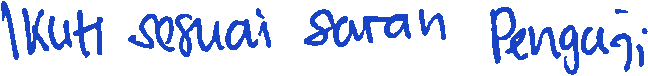 Ikuti sesuai saran Penguji